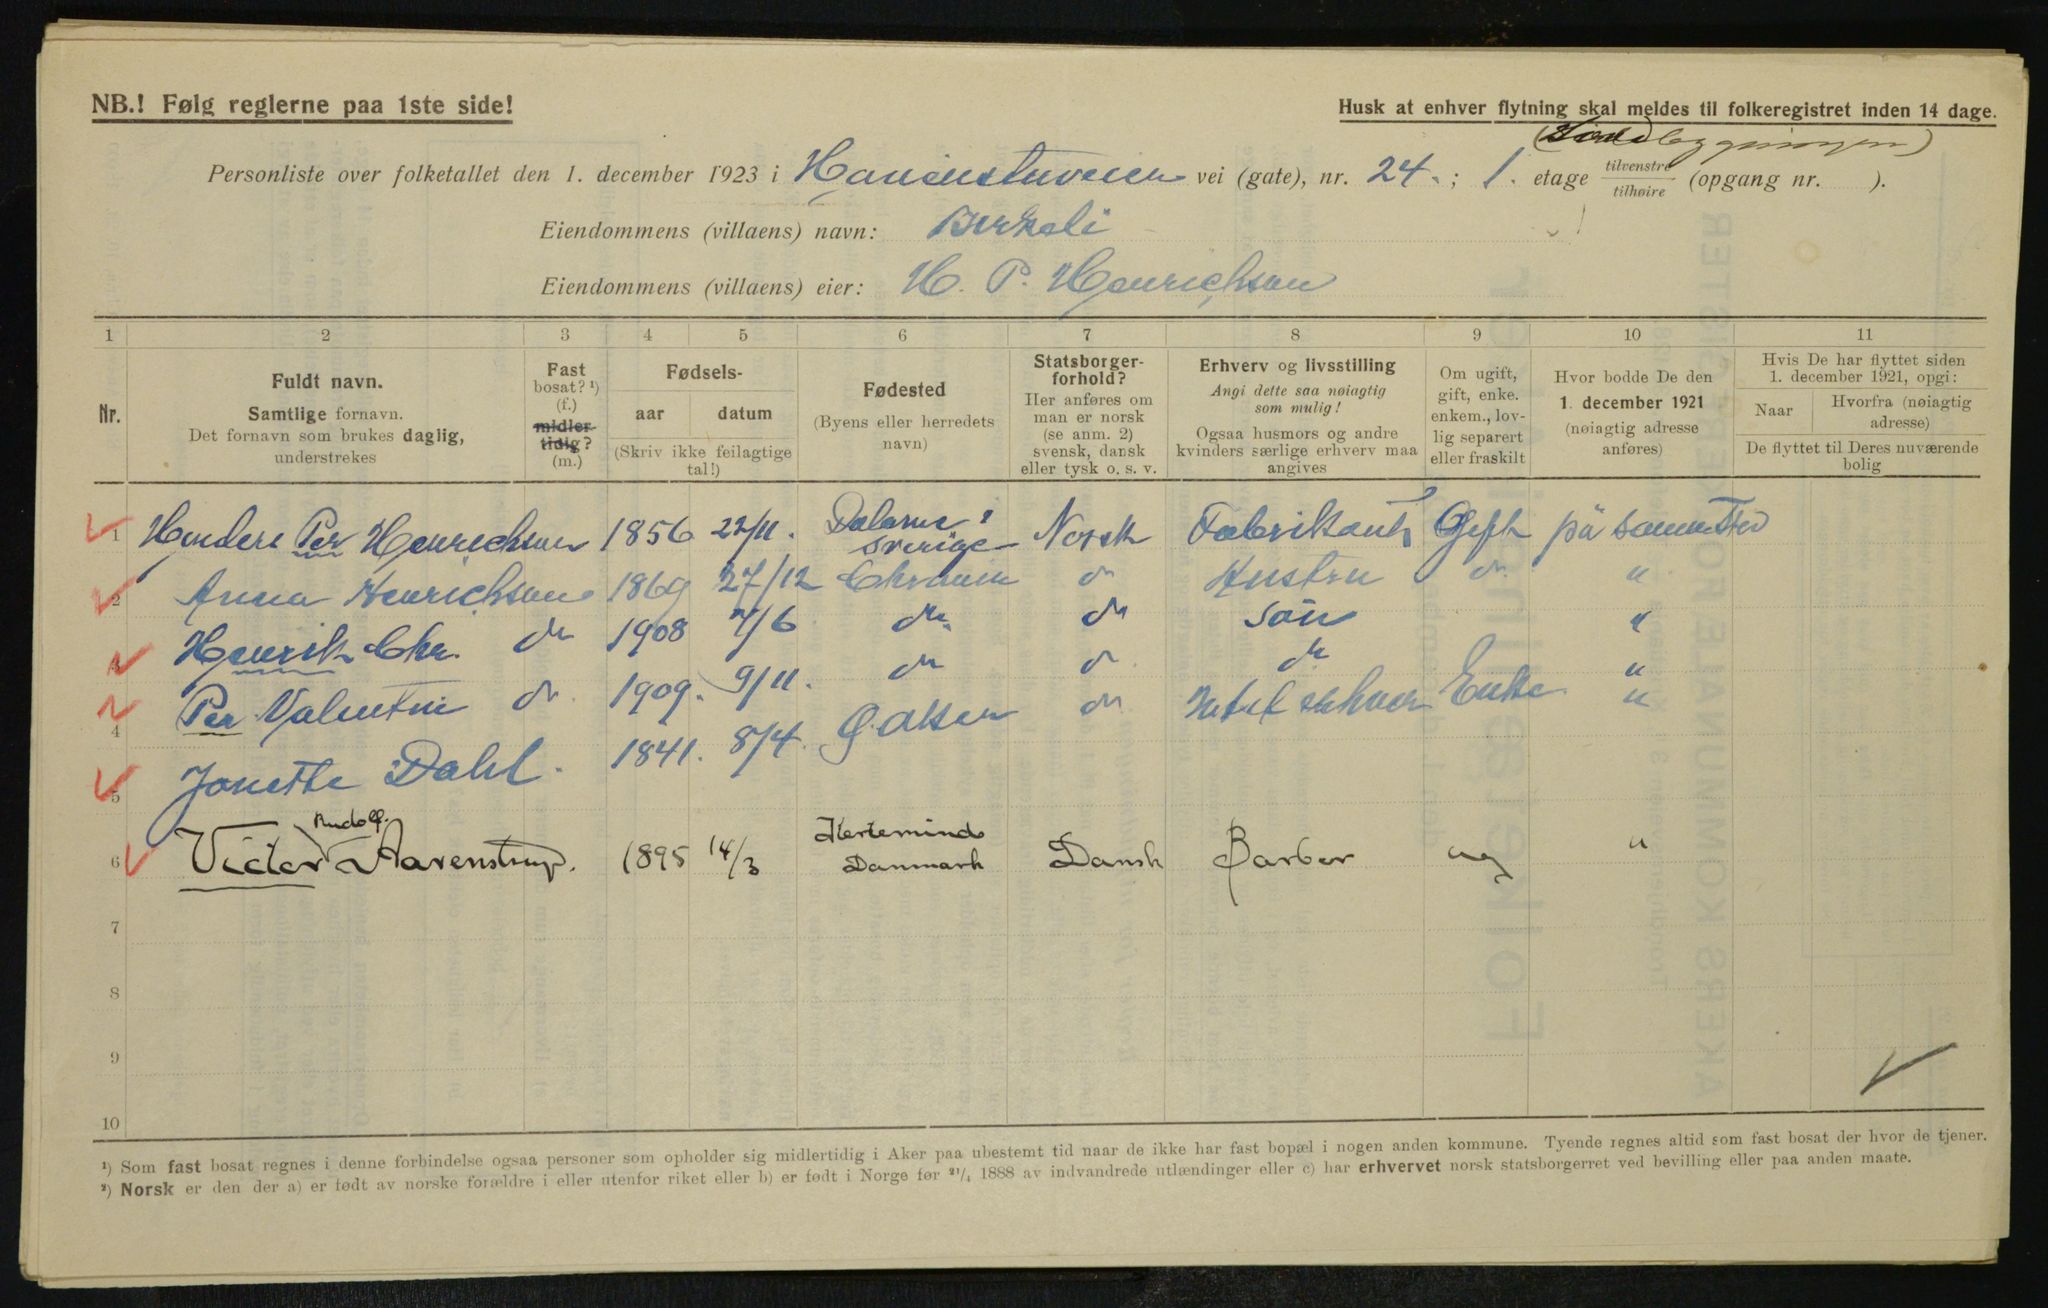 NB.! Følg reglerne paa 1ste side!
Husk at enhver flytning skal meldes til folkeregistret inden 14 dage.
Personliste over folketallet den 1. december 1923 i vei (gate), nr. 24. ; 1. etage tilvenstre tilhøire (opgang nr. ).
Eiendommens (villaens) navn: Birkeli
Eiendommens (villaens) eier: H. P. Henrichson
1 2 3 4 5 6 7 8 9 10 11
Nr.
Fuldt navn.
Samtlige fornavn.
Det fornavn som brukes daglig,
understrekes
Fast
bosat? ¹)
(f.)
midler-
tidig?
(m.)
Fødsels-
aar datum
(Skriv ikke feilagtige
tal!)
Fødested
(Byens eller herredets
navn)
Statsborger-
forhold?
Her anføres om
man er norsk
(se anm. 2)
svensk, dansk
eller tysk o. s. v.
Erhverv og livsstilling
Angi dette saa nøiagtig
som mulig!
Ogsaa husmors og andre
kvinders særlige erhverv maa
angives
Om ugift,
gift, enke.
enkem., lov-
lig separert
eller fraskilt
Hvor bodde De den
1. december 1921
(nøiagtig adresse
anføres)
Hvis De har flyttet siden
1. december 1921, opgi:
Naar
Hvorfra (nøiagtig
adresse)
De flyttet til Deres nuværende
bolig
1 Per Henrichson 1856 22/11. Dalarne Sverige Norsk Fabrikant Gift på samme sted
2 Anna Henrichson 1869 27/12 Chrania do Hustru do "
3 Henrik Chr. do 1908 7/6 do do Søn "
4 Per Valentin do 1909. 9/11. do do do "
5 Jonette Dahl. 1841. 8/4. Ø. Aker do Intet erhverv Enke "
6 Victor Rudolf. Aarenstrup. 1895 14/3 Kerteminde Danmark Dansk Barber ug "
7
8
9
10
¹) Som fast bosat regnes i denne forbindelse ogsaa personer som opholder sig midlertidig i Aker paa ubestemt tid naar de ikke har fast bopæl i nogen anden kommune. Tyende regnes altid som fast bosat der hvor de tjener.
²) Norsk er den der a) er født av norske forældre i eller utenfor riket eller b) er født i Norge før ²¹/₄ 1888 av indvandrede utlændinger eller c) har erhvervet norsk statsborgerret ved bevilling eller paa anden maate.